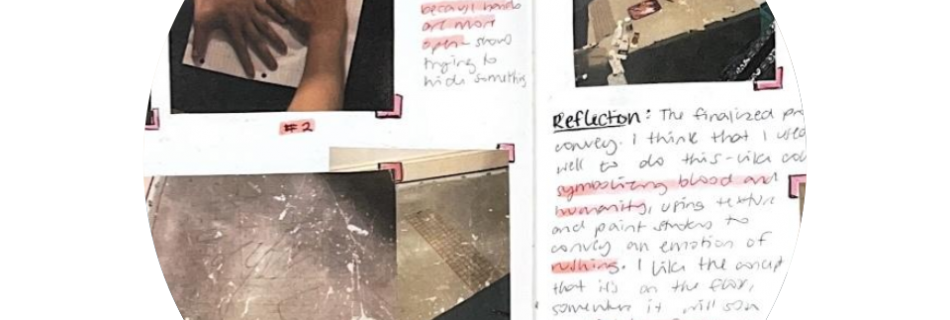 because hands
are more
open - shows
trying to
hide something
#2
Reflection: The finalized
convey. I think that I used
well to do this - like
symbolizing blood and
humanity, using texture
and paint strokes to
convey an emotion of
rushing. I like the concept
that it's on the floor,
it will soon